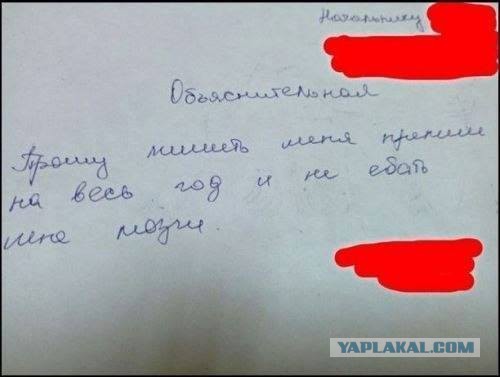 Начальнику
Объяснительная
Прошу лишить меня премии
на весь год и не ебать
мне мозги.
YAPLAKAL.COM